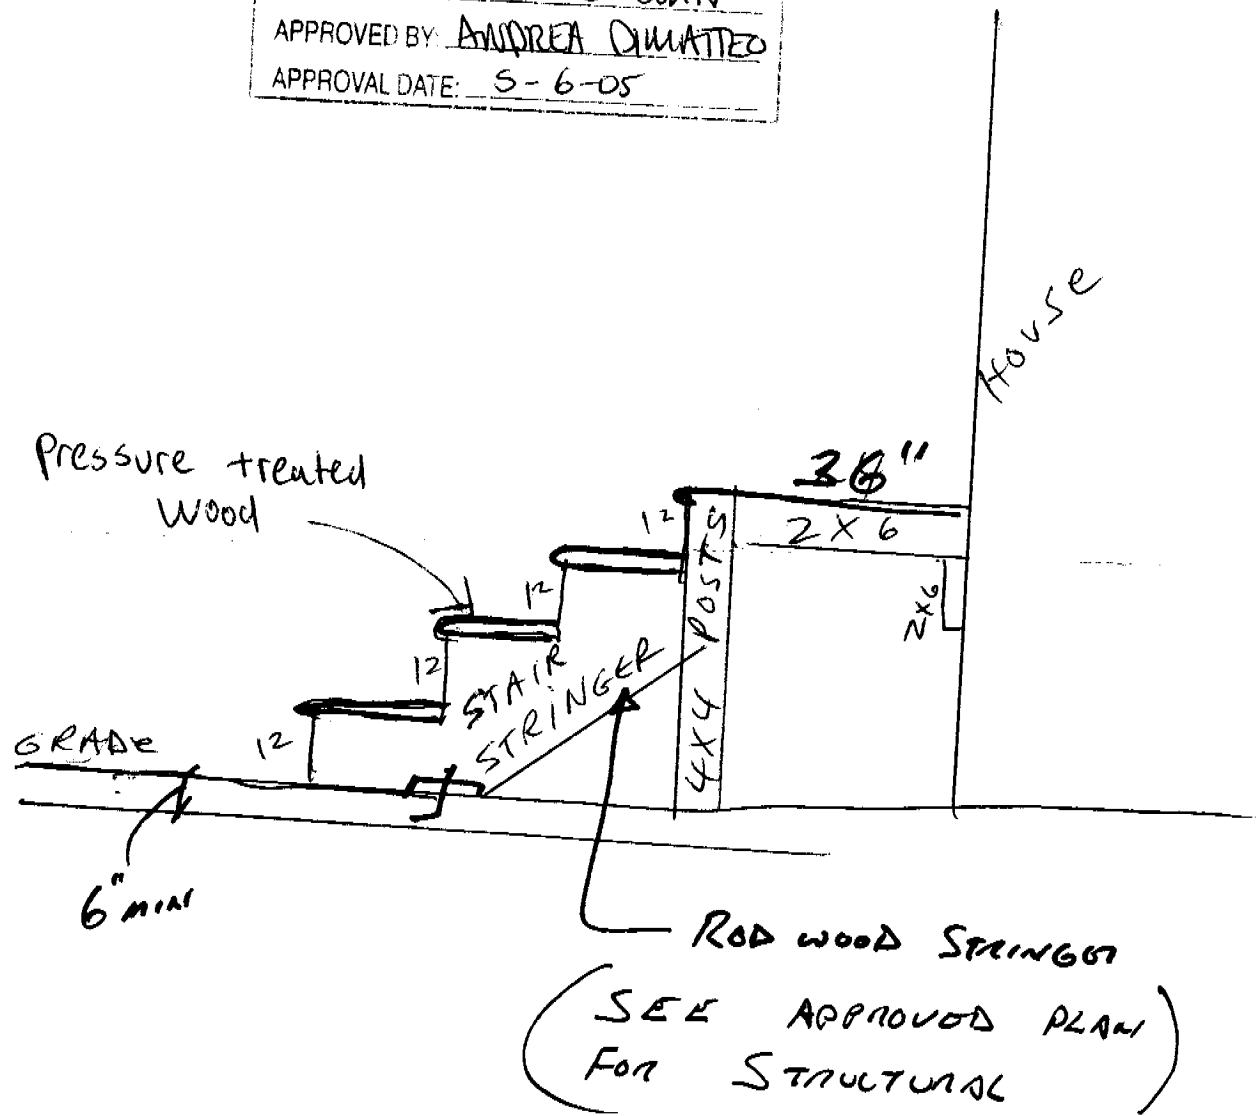 APPROVED BY: ANDREA DIMATTEO
APPROVAL DATE: 5-6-05
House
Pressure treated
Wood
2 X 6
12
12
12
12
2x6
4X4 POSTS
STAIR
STRINGER
GRADE
6" MIN
ROD WOOD STRINGER
(SEE APPROVED PLAN
FOR STRUCTURAL)